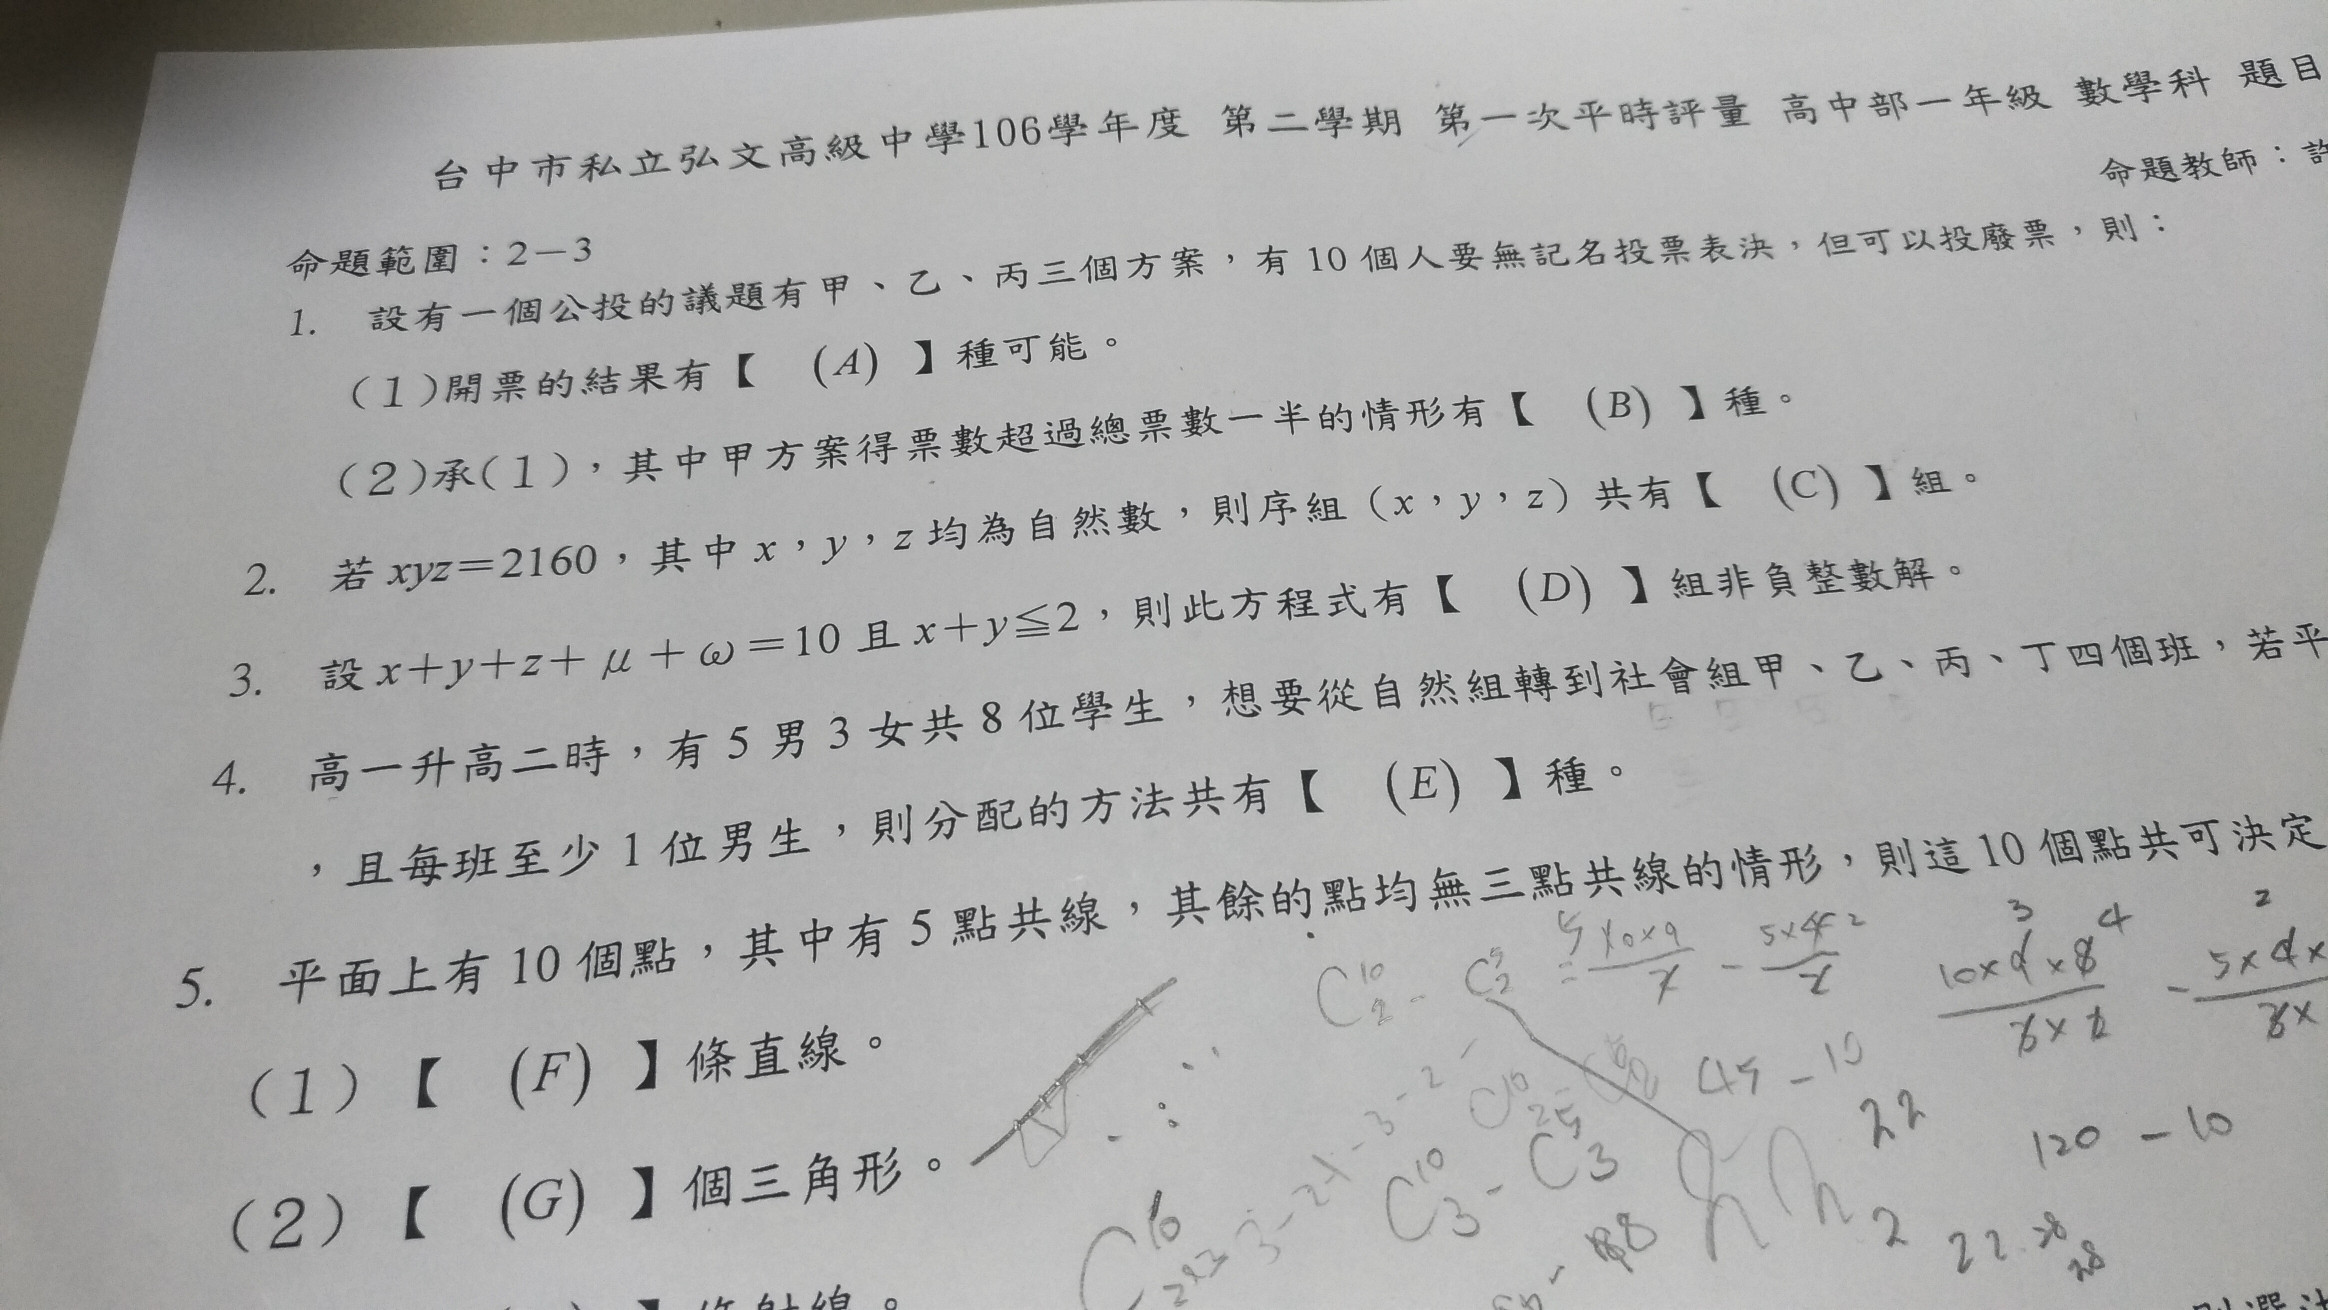 台中市私立弘文高級中學106學年度 第二學期 第一次平時評量 高中部一年級 數學科 題目
命題教師：許
命題範圍：2－3
1. 設有一個公投的議題有甲、乙、丙三個方案，有 10 個人要無記名投票表決，但可以投廢票，則：
(1)開票的結果有【 (A) 】種可能。
(2)承(1)，其中甲方案得票數超過總票數一半的情形有【 (B) 】種。
2. 若 xyz＝2160，其中 x，y，z 均為自然數，則序組（x，y，z）共有【 (C) 】組。
3. 設 x＋y＋z＋μ＋ω＝10 且 x＋y≦2，則此方程式有【 (D) 】組非負整數解。
4. 高一升高二時，有 5 男 3 女共 8 位學生，想要從自然組轉到社會組甲、乙、丙、丁四個班，若平
，且每班至少 1 位男生，則分配的方法共有【 (E) 】種。
5. 平面上有 10 個點，其中有 5 點共線，其餘的點均無三點共線的情形，則這 10 個點共可決定
(1)【 (F) 】條直線。
(2)【 (G) 】個三角形。
45－10
120－10
22